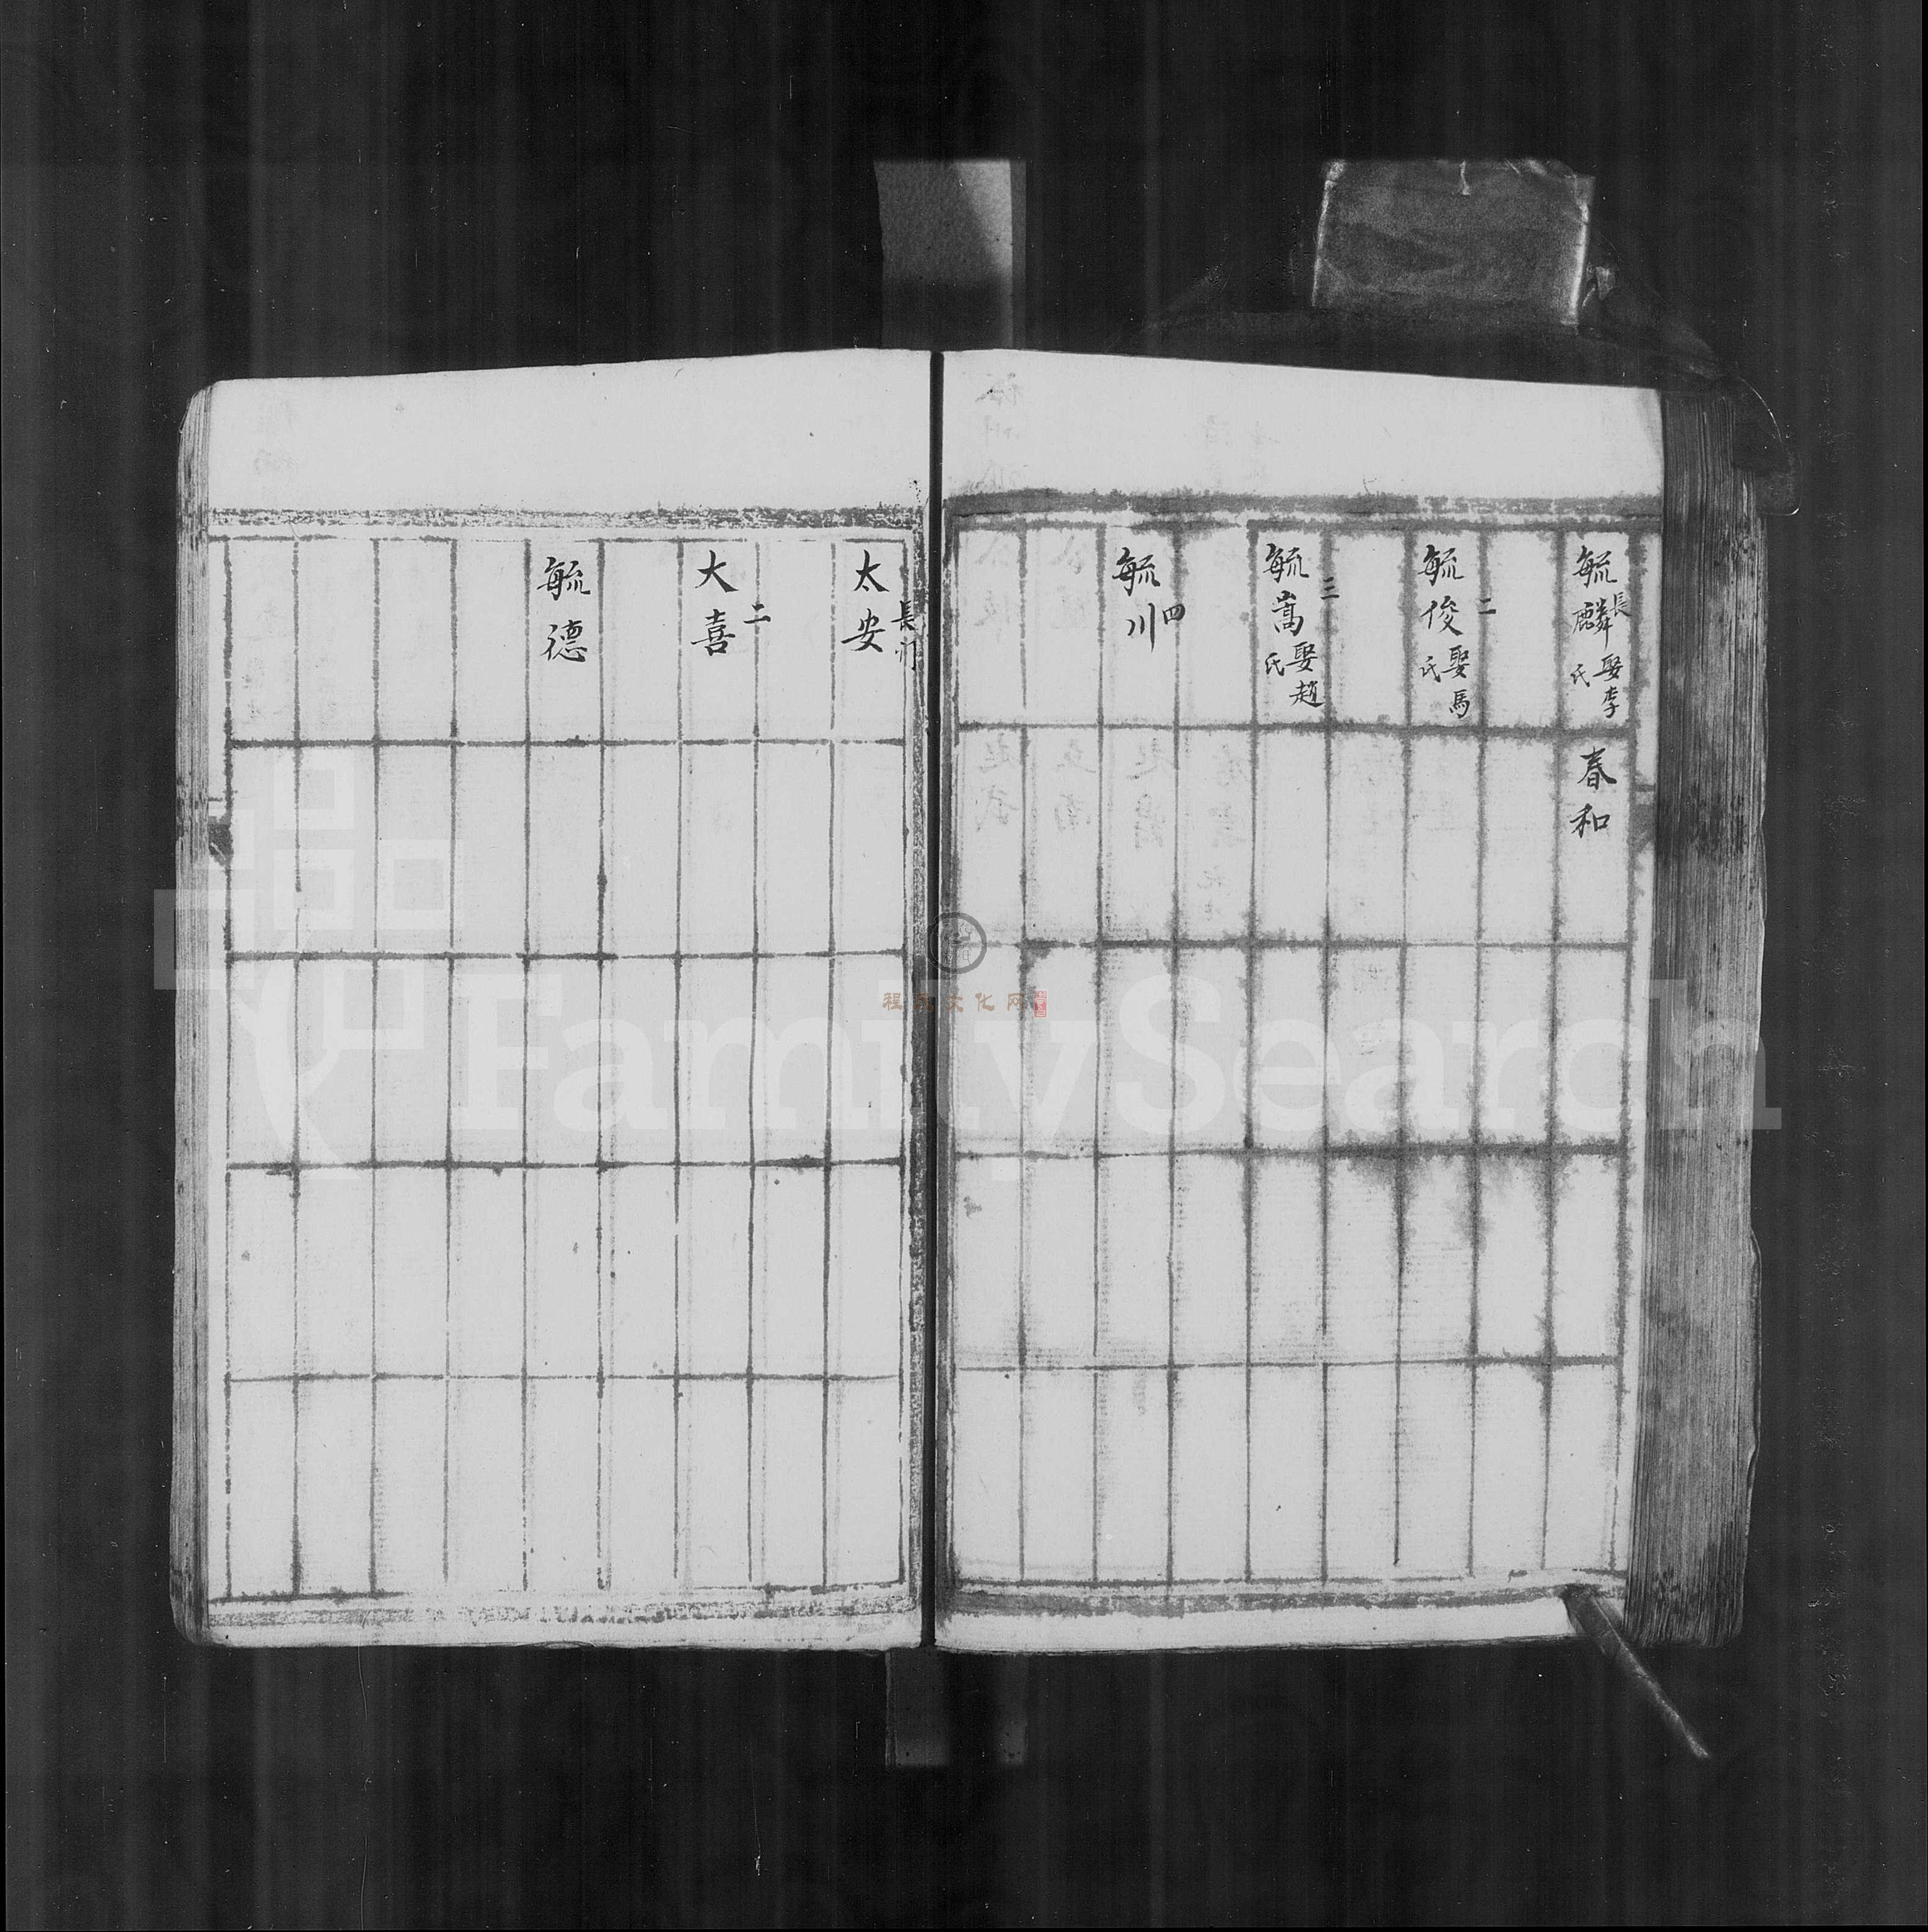 長
毓麟娶李氏
春和
二
毓俊娶馬氏
三
毓嵩娶趙氏
四
毓川
長门
太安
二
大喜
毓德
FamilySearch